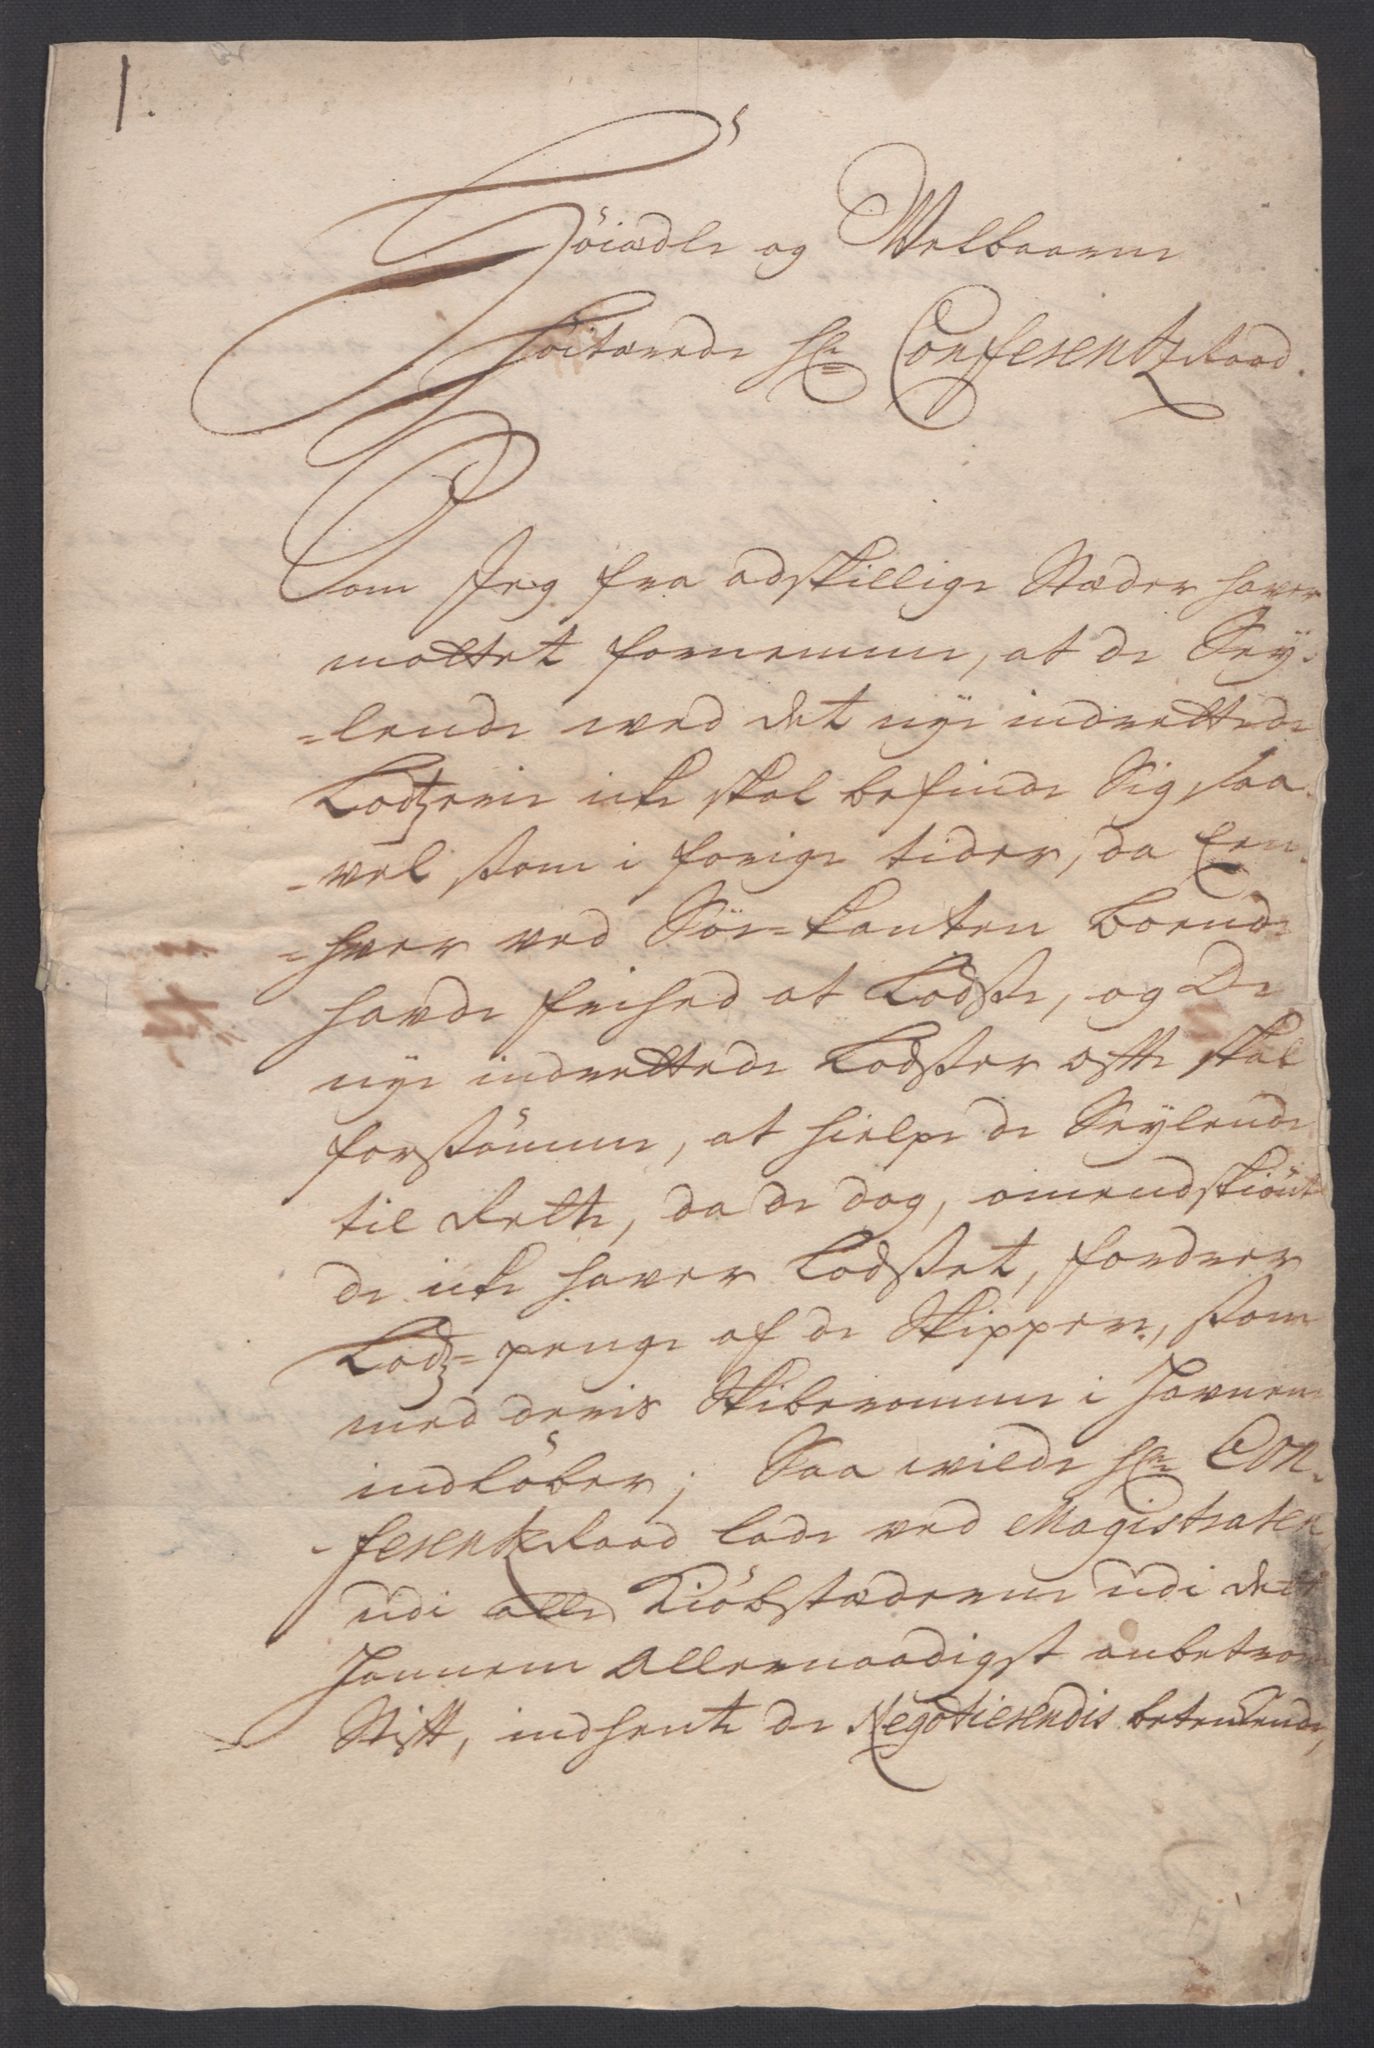 1.
Höiædle og Welbaarne
Höitærede Hr. Conferentz Raad.
Som Jeg fra adskillige Stæder haver
mottet fornemme, at de Sey-
=lende wed det nye indrettede
Lodtzerie icke skal befinde Sig saa-
=vel som i forige tider, da Een-
=hver ved Söe-kanten boende
havde frihed at Lodsse, og De
nye indrettede Lodsser ofte skal
forsömme, at hielpe de Seylende
til Rette, da de dog, omendskiönt
de icke haver Lodsset, fordrer
Lodtz=penge af de Skippere, som
med deris Skiberomme i Havnene
indlöber; Saa wilde Hr. Con-
-ferentz Raad lade ved Magistraten
udi alle Kiöbstæderne udi dett
Hannem Allernaadigst anbetroede
Stift, indhente de Negotierendis betenkende,